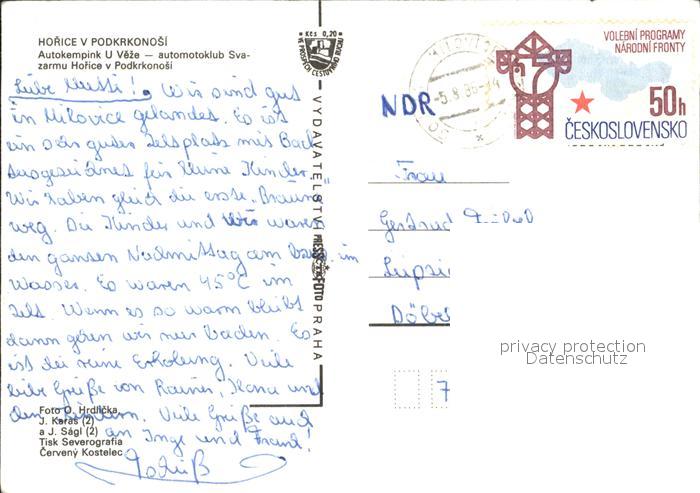 HOŘICE V PODKRKONOŠÍ
Autokempink U Věže — automotoklub Sva-
zarmu Hořice v Podkrkonoší
Kčs 0,20
VE PROSPĚCH CESTOVNÍHO RUCHU
VYDAVATELSTVÍ PRESSFOTO PRAHA
Liebe Mutti! Wir sind gut
in Milovice gelandet. Es ist
ein sehr guter Zeltplatz mit Bach
ausgezeichnet für kleine Kinder.
Wir haben gleich die erste „Bräune"
weg. Die Kinder und wir waren
den ganzen Nachmittag am bzw. im
Wasser. Es waren 45°C im
Zelt. Wenn es so warm bleibt
dann gehen wir nur baden. Es
ist die reine Erholung. Viele
liebe Grüße von Rainer, Ilona und
den Kindern. Viele Grüße auch
an Inge und Frank!
Foto O. Hrdlička,
J. Karas (2)
a J. Ságl (2)
Tisk Severografia
Červený Kostelec
VOLEBNÍ PROGRAMY
NÁRODNÍ FRONTY
50h
ČESKOSLOVENSKO
-5.8.86-14
NDR
Frau
Gertrud
Leipzi
Döbe
7
privacy protection
Datenschutz